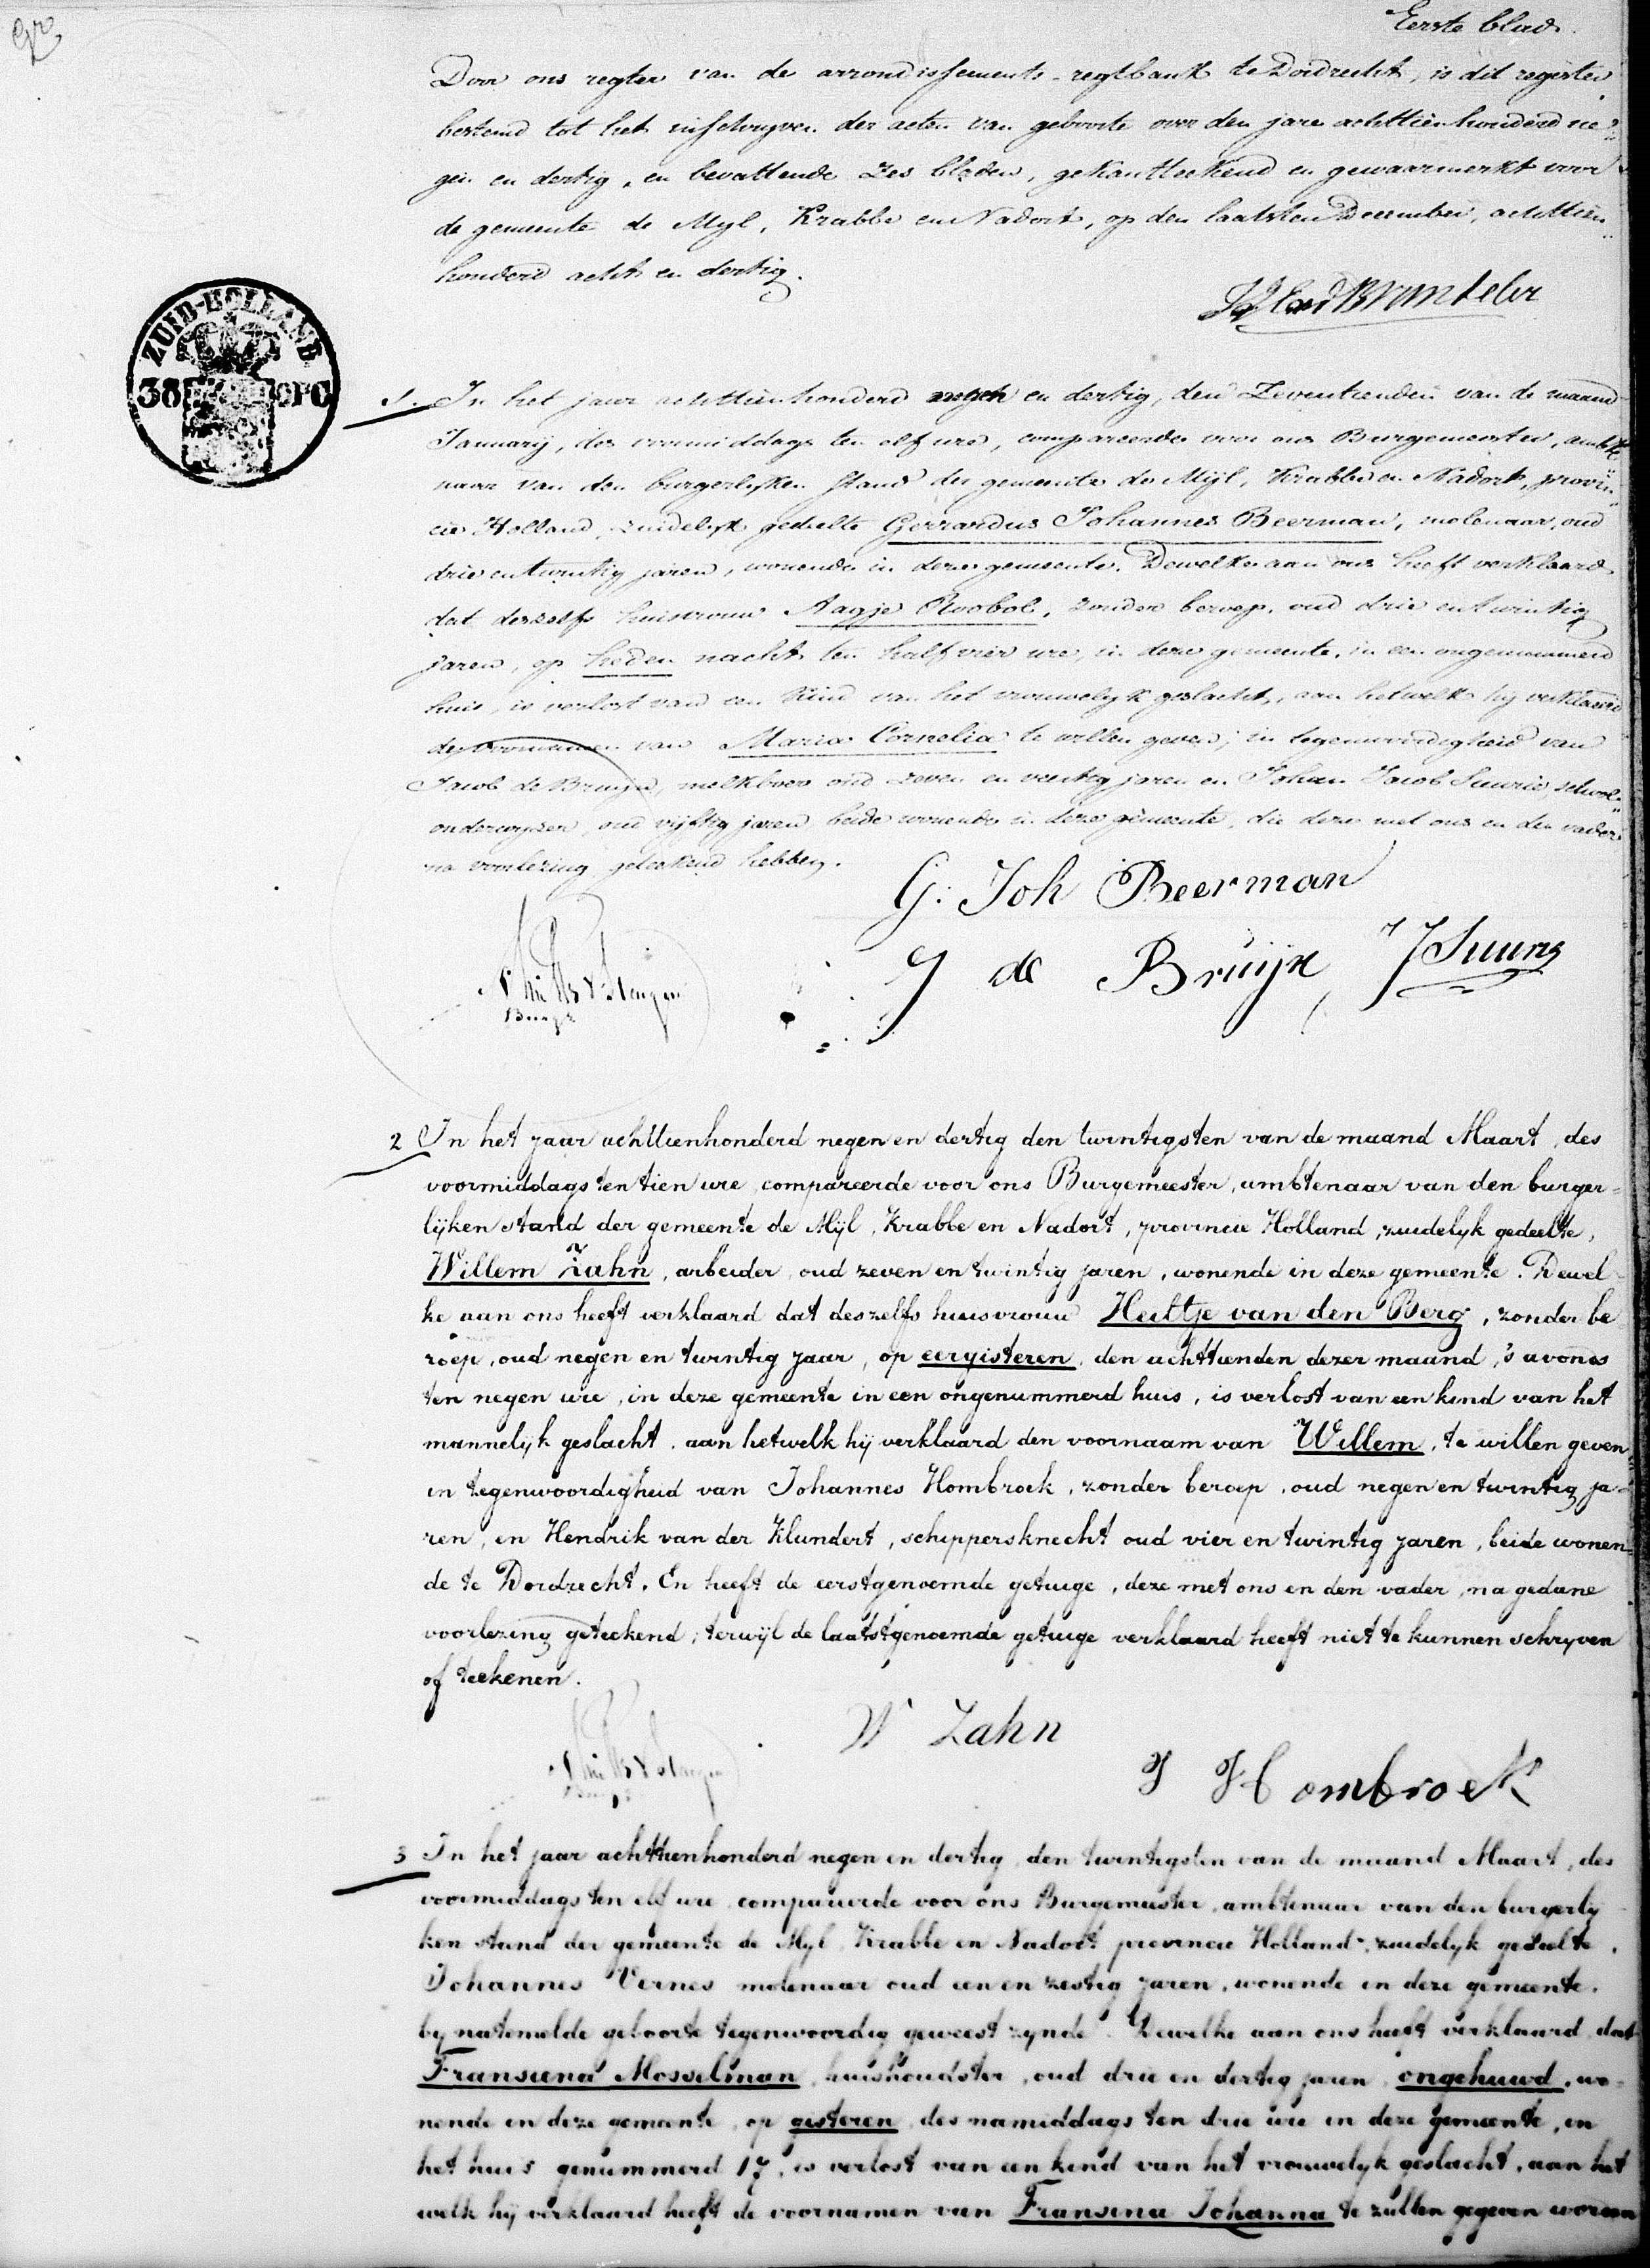 Eerste blad.
Door ons regter van de arrondissements-regtbank te Dordrecht, is dit register
bestemd tot het inschrijven der acten van geboorte over den jare achttienhonderd ne=
gen en dertig, en bevattende zes bladen, gekantteekend en gewaarmerkt voor
de gemeente de Mijl, Krabbe en Nadort, op den laatsten December, achttien
honderd acht en dertig.
ZUID-HOLLAND
38 OPC
1. In het jaar achttienhonderd negen en dertig, den Zeventienden van de maand
Januarij, des voormiddags ten elf ure, compareerde voor ons Burgemeester, ambte
naar van den burgerlijken Stand der gemeente de Mijl, Krabbe en Nadort, provin
cie Holland, zuidelijk gedeelte Gerrardus Johannes Beerman, molenaar, oud
drie en twintig jaren, wonende in deze gemeente. Dewelke aan ons heeft verklaard
dat deszelfs huisvrouw Aagje Roobol, zonder beroep, oud drie en twintig
jaren, op heden nacht ten half vier ure, in deze gemeente, in een ongenummerd
huis, is verlost van een kind van het vrouwelijk geslacht, aan hetwelk hij verklaard
de voornamen van Maria Cornelia te willen geven; in tegenwoordigheid van
Jacob de Bruijn, melkboer oud zeven en veertig jaren en Johan Jacob Suurie, school=
onderwijzer, oud vijftig jaren beide wonende in deze gemeente, die deze met ons en den vader
na voorlezing geteekend hebben.
G: Joh Beerman
J de Bruijn
2 In het jaar achttienhonderd negen en dertig den twintigsten van de maand Maart, des
voormiddags ten tien ure, compareerde voor ons Burgemeester, ambtenaar van den burger=
lijken stand der gemeente de Mijl, Krabbe en Nadort, provincie Holland, zuidelyk gedeelte,
Willem Zahn, arbeider, oud zeven en twintig jaren, wonende in deze gemeente. Dewel
ke aan ons heeft verklaard dat deszelfs huisvrouw Heiltje van den Berg, zonder be
roep, oud negen en twintig jaar, op eergisteren, den achttienden dezer maand, 's avonds
ten negen ure, in deze gemeente in een ongenummerd huis, is verlost van een kind van het
mannelijk geslacht, aan hetwelk hij verklaard den voornaam van Willem, te willen geven
in tegenwoordigheid van Johannes Hombroek, zonder beroep, oud negen en twintig ja=
ren, en Hendrik van der Klundert, schippersknecht oud vier en twintig jaren, beide wonen=
de te Dordrecht. En heeft de eerstgenoemde getuige, deze met ons en den vader, na gedane
voorlezing geteekend; terwijl de laatstgenoemde getuige verklaard heeft niet te kunnen schryven
of teekenen.
W Zahn
J Hombroek
3 In het jaar achttienhonderd negen en dertig, den twintigsten van de maand Maart, des
voormiddags ten elf ure, compareerde voor ons Burgemeester, ambtenaar van den burgerly
ken stand der gemeente de Myl, Krabbe en Nadort provincie Holland, zuidelyk gedeelte,
Johannes Vernes molenaar oud een en zestig jaren, wonende in deze gemeente.
by natemelde geboorte tegenwoordig geweest zynde. Dewelke aan ons heeft verklaard, dat
Fransiena Mosselman, huishoudster, oud drie en dertig jaren, ongehuwd, wo=
nende in deze gemeente, op gisteren, des namiddags ten drie ure in deze gemeente, in
het huis genummerd 17, is verlost van een kind van het vrouwelyk geslacht, aan het
welk hij verklaard heeft de voornamen van Fransina Johanna te zullen gegeven worden